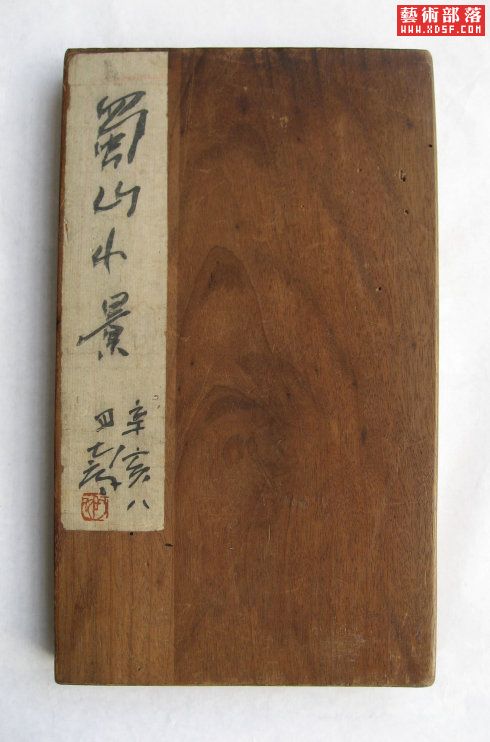 藝術部落
WWW.XDSF.COM
蜀山小景
辛亥八
四